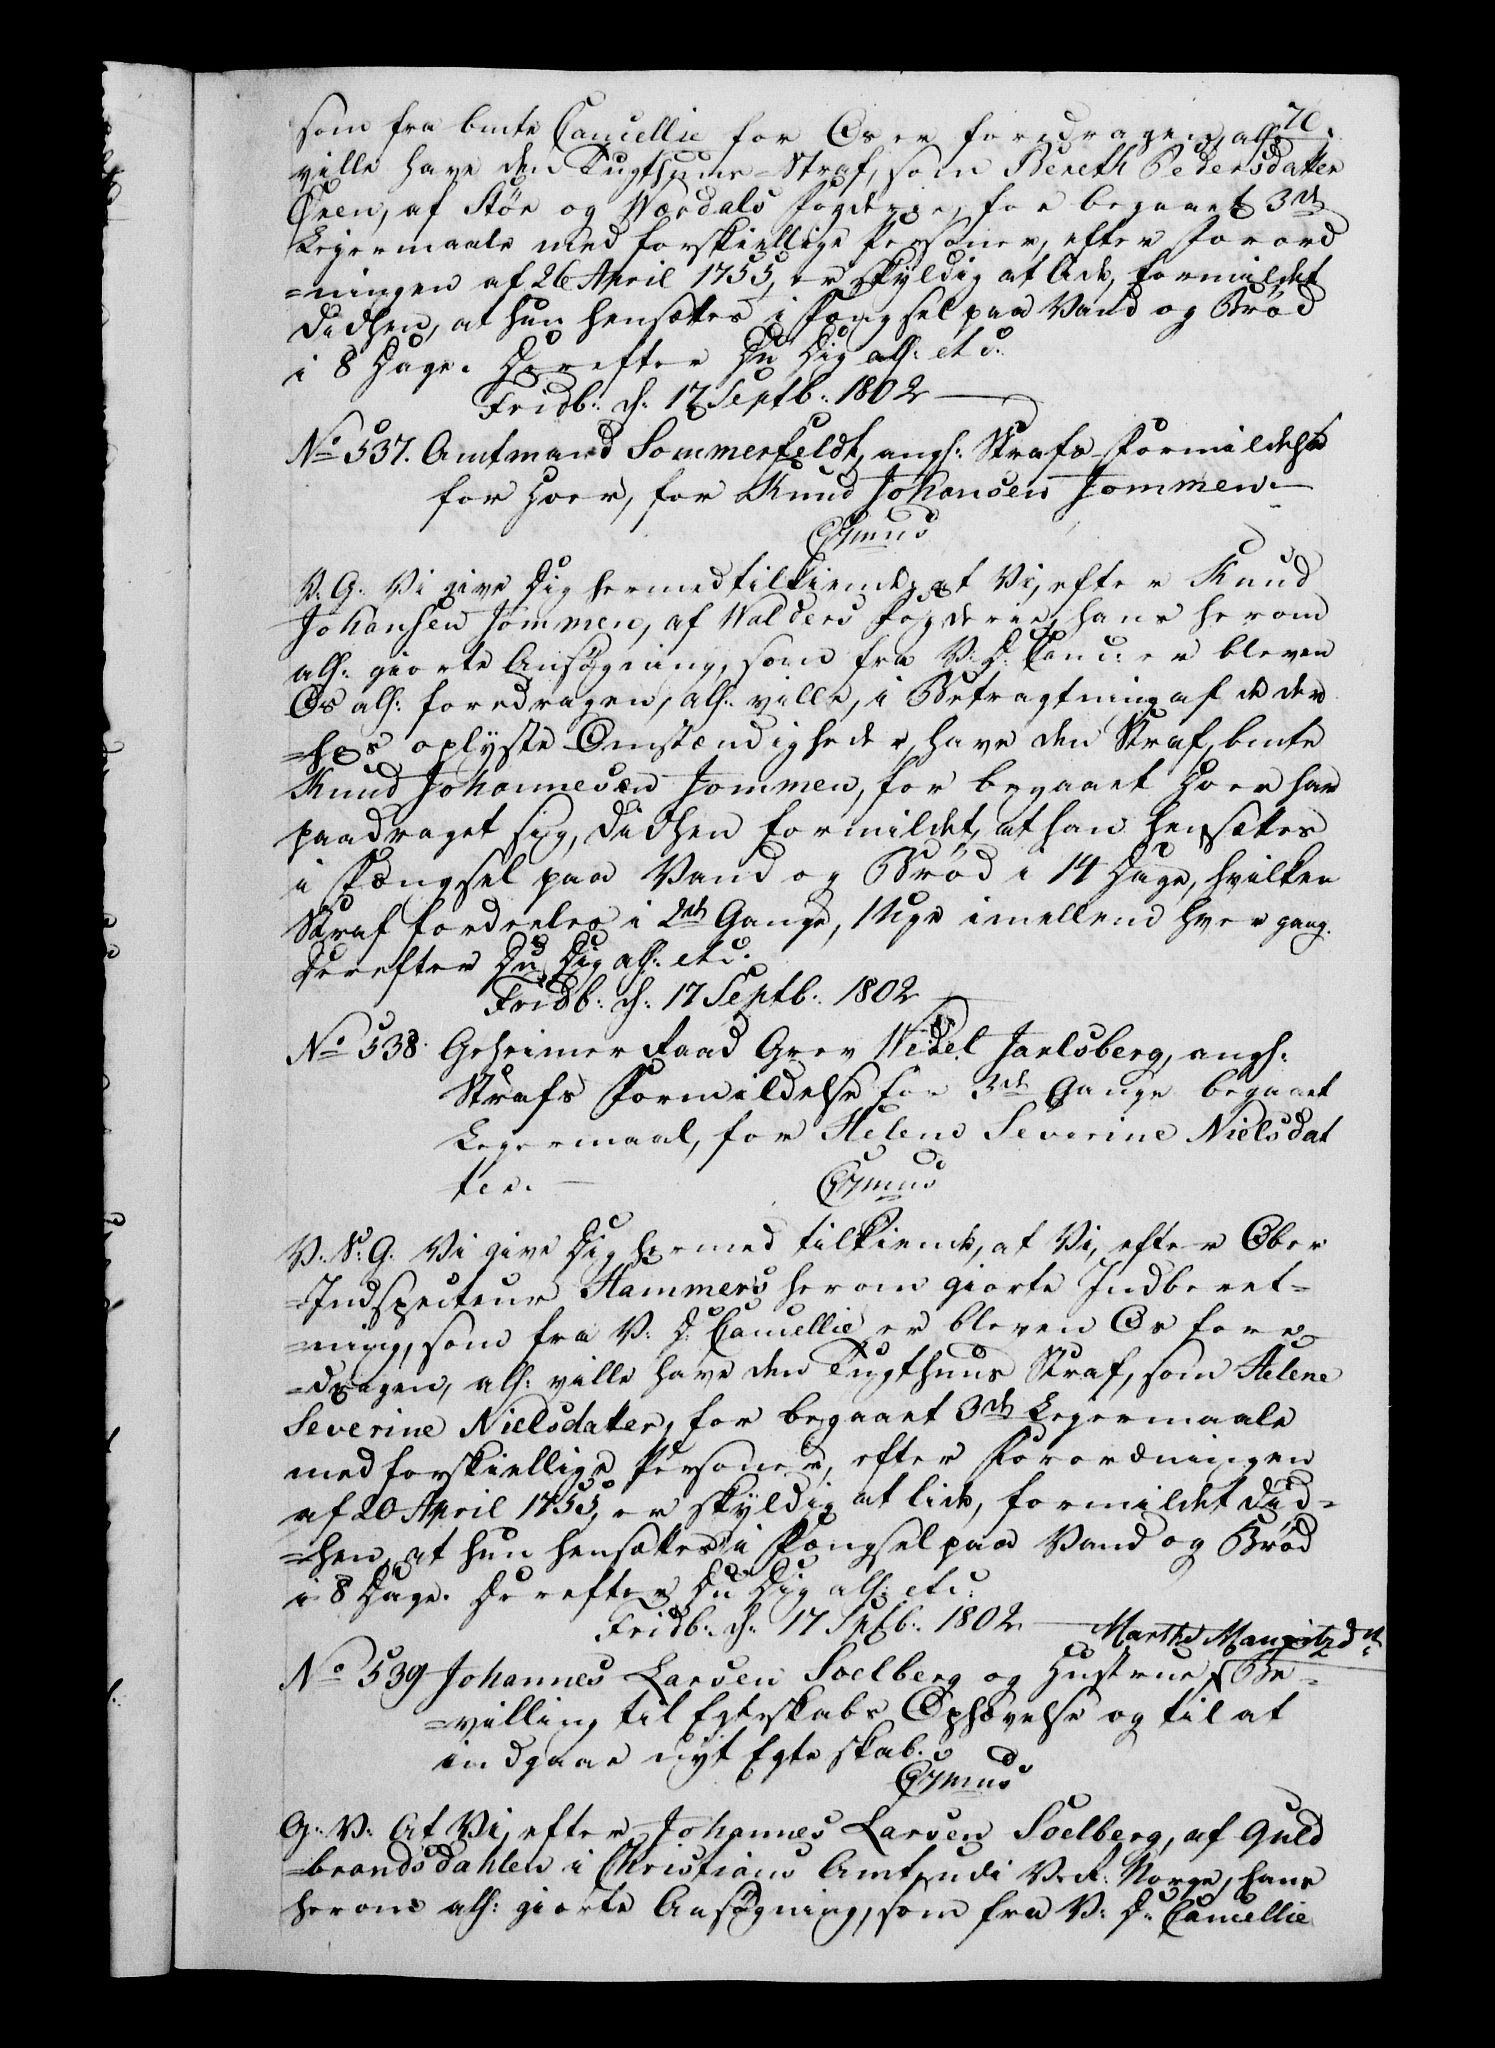 76.
som fra bmte Cancellie for Os er foredragen, allr:
ville have den Tugthuus-Straf, som Bereth Pedersdatter
Øren, af Stör og Værdals Fogderie, for begaaet 3de
Leiermaale med forskiellige Personer, efter Forord
=ningen af 26 April 1755, er skyldig at lide, formildet
didhen, at hun hensættes i Fængsel paa Vand og Brød
i 8 Dage. Derefter Du Dig all: etc:
Fridb: d: 17 Septb: 1802
No 537. Amtmand Sommerfeldt, angl: Strafs Formildelse
for Hoer, for Knud Johansen Jommen.
V. G. Vi give Dig hermed tilkiende, at Vi, efter Knud
Johansen Jommen, af Walders Fogderie, hans herom
all: giorte Ansøgning, som fra V: D: Canc: er bleven
Os all: foredragen, all: ville, i Betragtning af de der
=hos oplyste Omstændigheder, have den Straf, bmte
Knud Johannesen Jommen, for begaaet Hoer har
paadraget sig, didhen formildet, at han hensættes
i Fængsel paa Vand og Brød i 14 Dage, hvilken
Straf fordeeles i 2de Gange, 1 Uge imellem hver gang.
Derefter Du Dig all: etc.
Fridb: d: 17 Septb: 1802
No 538. Geheimeraad Grev Wedel Jarlsberg, angl:
Strafs Formildelse for 3de Gange begaaet
Leyermaal, for Helene Severine Nielsdat
ter.
V. S: G. Vi give Dig hermed tilkiende, at Vi, efter Ober
=Indspecteur Hammers herom giorte Indberet=
=ning, som fra V: D: Cancellie er bleven Os fore
=dragen, all: ville have den Tugthuus Straf, som Helene
Severine Nielsdatter, for begaaet 3de Leyermaale
med forskiellige Personer, efter Forordningen
af 20 April 1755, er skyldig at lide, formildet did=
=hen, at hun hensættes i Fængsel paa Vand og Brød
i 8 Dage. Derefter Du Dig all: etc:
Fridb: d: 17 Septb: 1802
Marthe Mauritzdr
No 539 Johannes Larsen Soelberg og Hustrue, Be=
=villing til Egteskabs Ophævelse og til at
indgaae nyt Egteskab.
G. V: At Vi, efter Johannes Larsen Soelberg, af Guld
=brandsdahlen i Christians Amt udi V. R: Norge, hans
herom all: giorte Ansøgning, som fra V: D: Cancellie